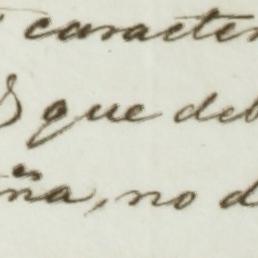 caracter
que deb
ña, no d